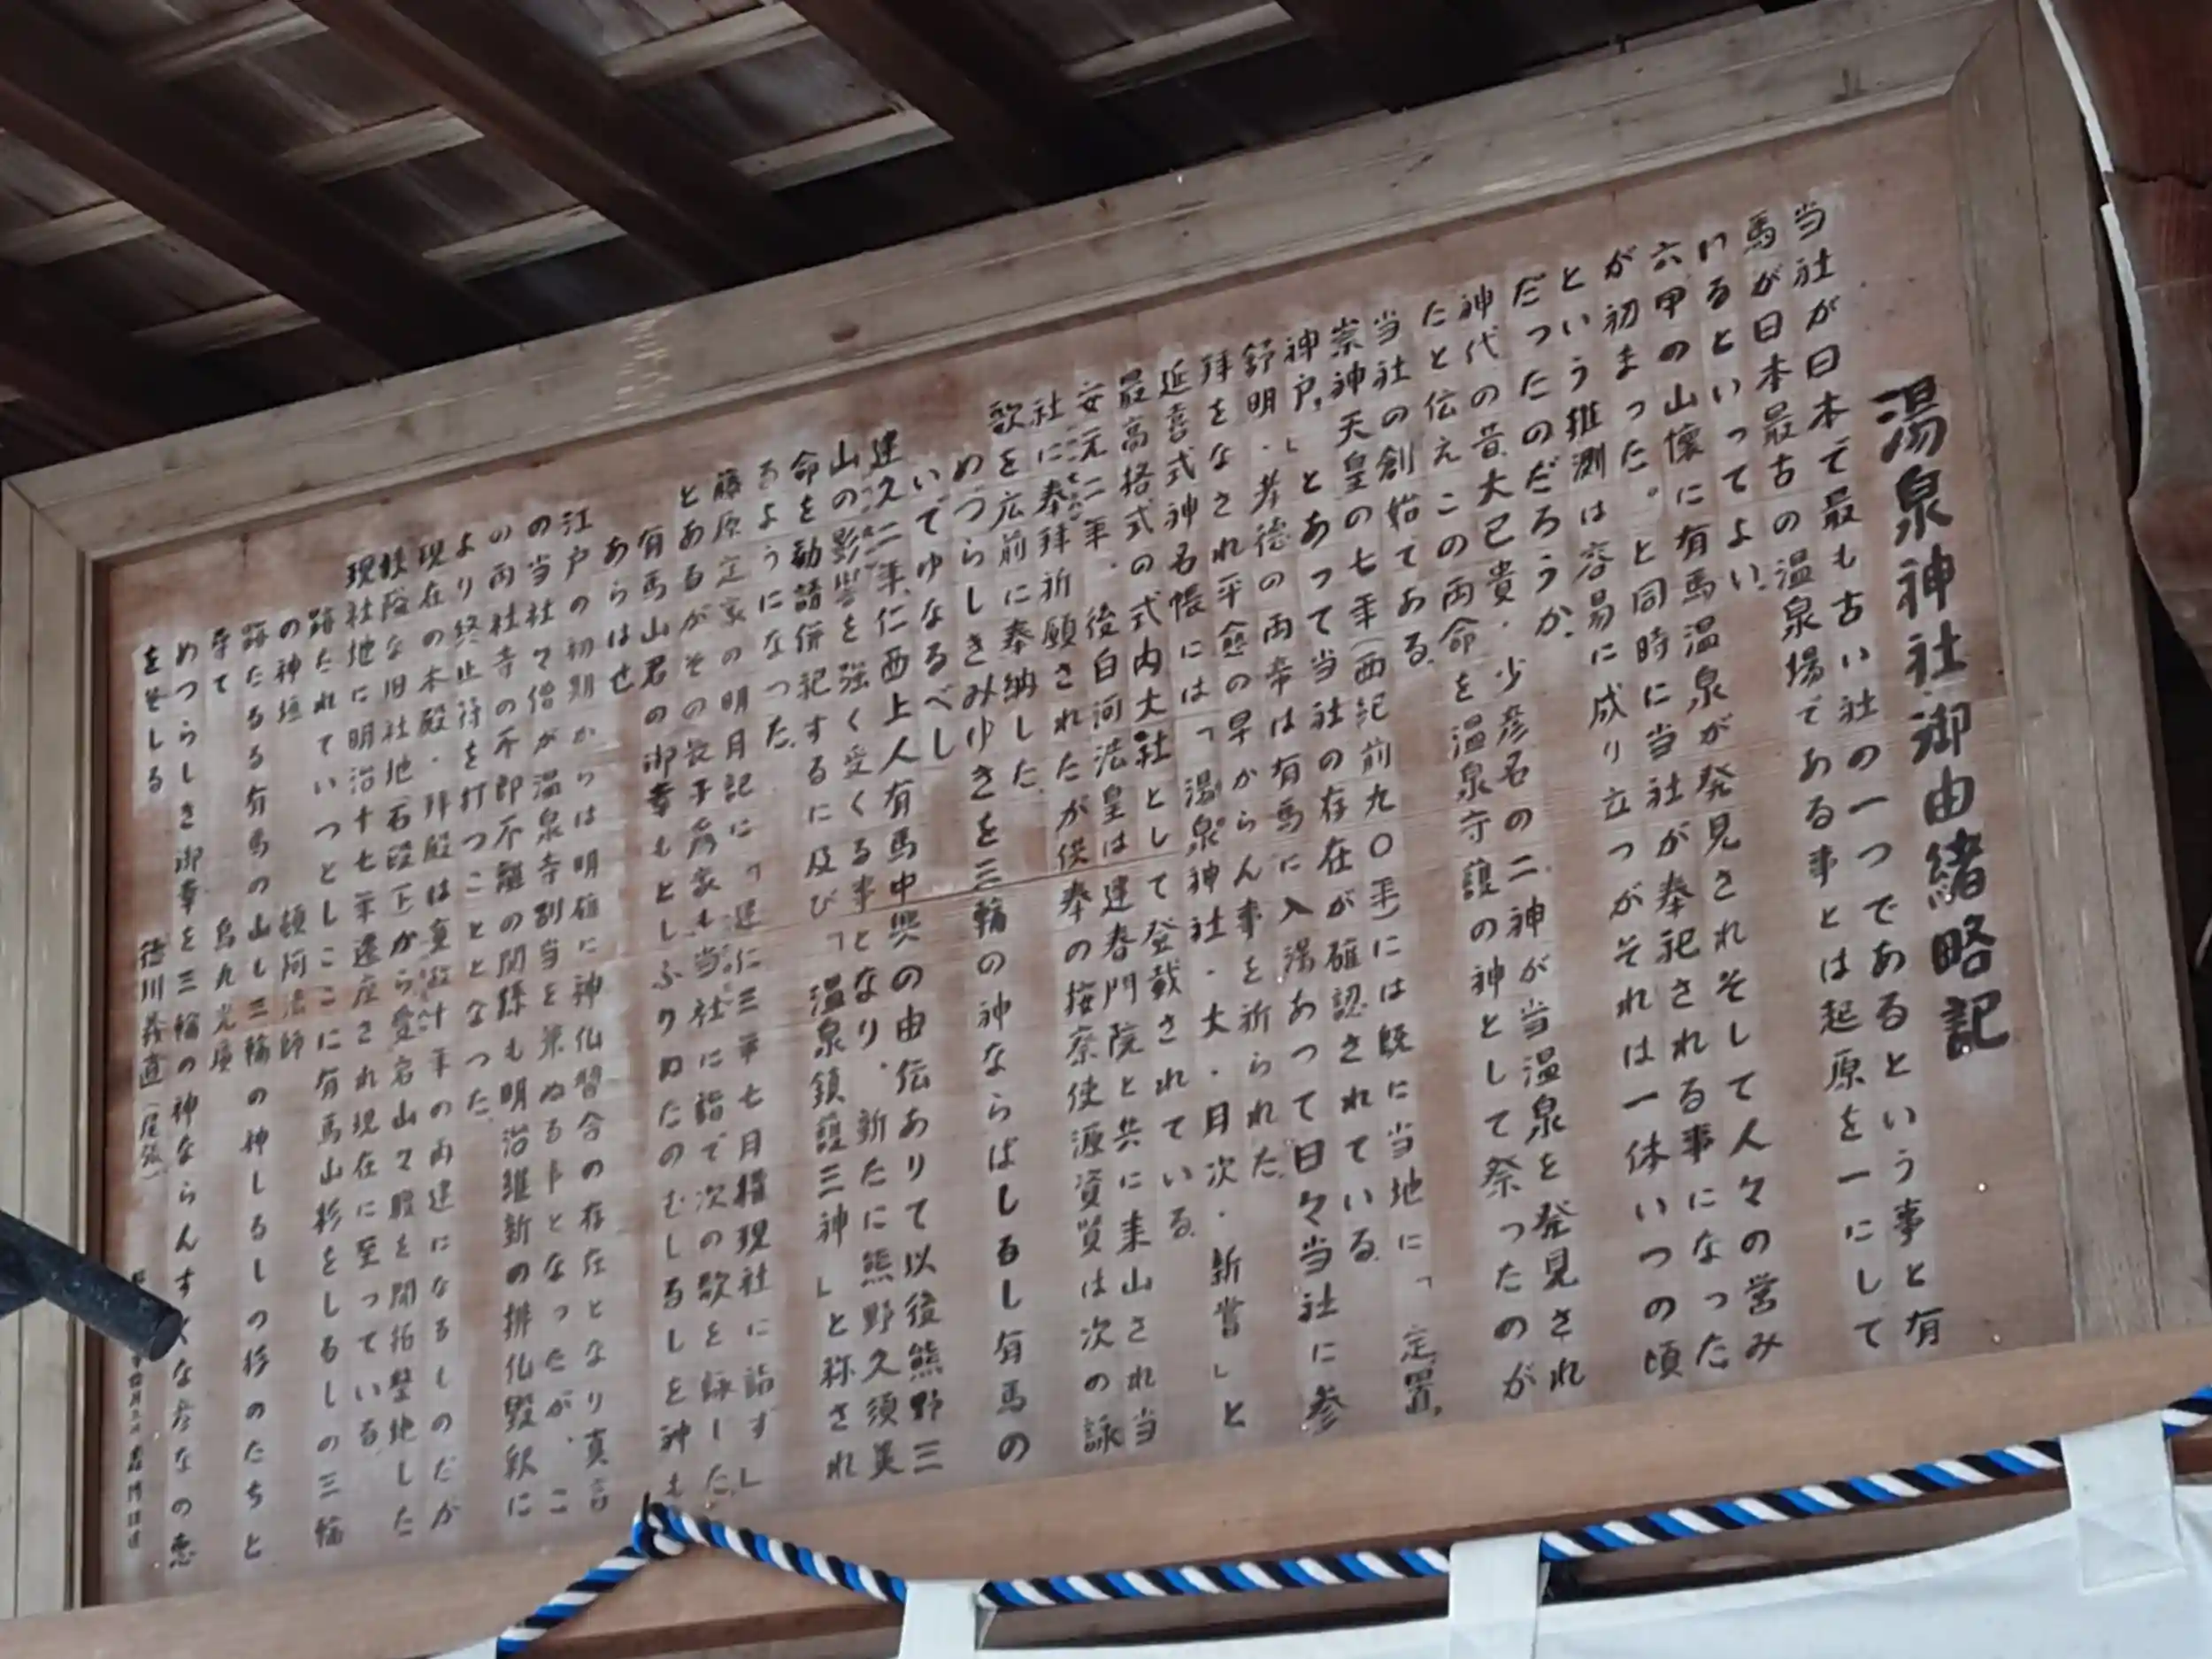 湯泉神社御由緒略記
当社が日本で最も古い社の一つであるという事と有
馬が日本最古の温泉場である事とは起原を一にして
いるといってよい。
六甲の山懐に有馬温泉が発見されそして人々の営み
が初まった。と同時に当社が奉祀される事になった
という推測は容易に成り立つがそれは一体いつの頃
だったのだろうか。
神代の昔大己貴・少彦名の二神が当温泉を発見され
たと伝えこの両命を温泉守護の神として祭ったのが
当社の創始である。
崇神天皇の七年(西紀前九〇年)には既に当地に「定置、
神戸」とあって当社の存在が確認されている。
舒明・孝徳の両帝は有馬に入湯あって日々当社に参
拝をなされ平癒の早からん事を祈られた。
延喜式神名帳には「湯泉神社・大・月次・新嘗」と
最高格式の式内大社として登載されている。
安元二年・後白河法皇は建春門院と共に来山され当
社に奉拝祈願されたが供奉の按察使源資賢は次の詠
歌を広前に奉納した。
めづらしきみゆきを三輪の神ならばしるし有馬の
いでゆなるべし
建久二年、仁西上人有馬中興の由伝ありて以後熊野三
山の影響を強く受くる事となり、新たに熊野久須美
命を勧請併祀するに及び「温泉鎮護三神」と称され
るようになった。
藤原定家の明月記に「建仁三年七月権現社に詣ず」
とあるがその長子為家も当社に詣で次の歌を詠した。
有馬山君の御幸もとしふりぬたのむしるしを神も
あらはせ
江戸の初期からは明確に神仏習合の存在となり真言
の当社々僧が温泉寺別当を兼ぬる事となったが、こ
の両社寺の不即不離の関係も明治維新の排仏毀釈に
より終止符を打つこととなった。
現在の本殿・拝殿は寛政計年の再建になるしのだが
峻険な旧社地(石段下)から愛宕山々腹を開拓整地した
現社地に明治十七年遷座され現在に至っている。
跡たれていつとしここに有馬山杉をしるしの三輪
の神垣 頓阿法師
跡たるる有馬の山も三輪の神しるしの杉のたちと
寺て 烏丸光廣
めつらしき御幸を三輪の神ならんすくな彦なの恵
をそしる 徳川義直(尾張)